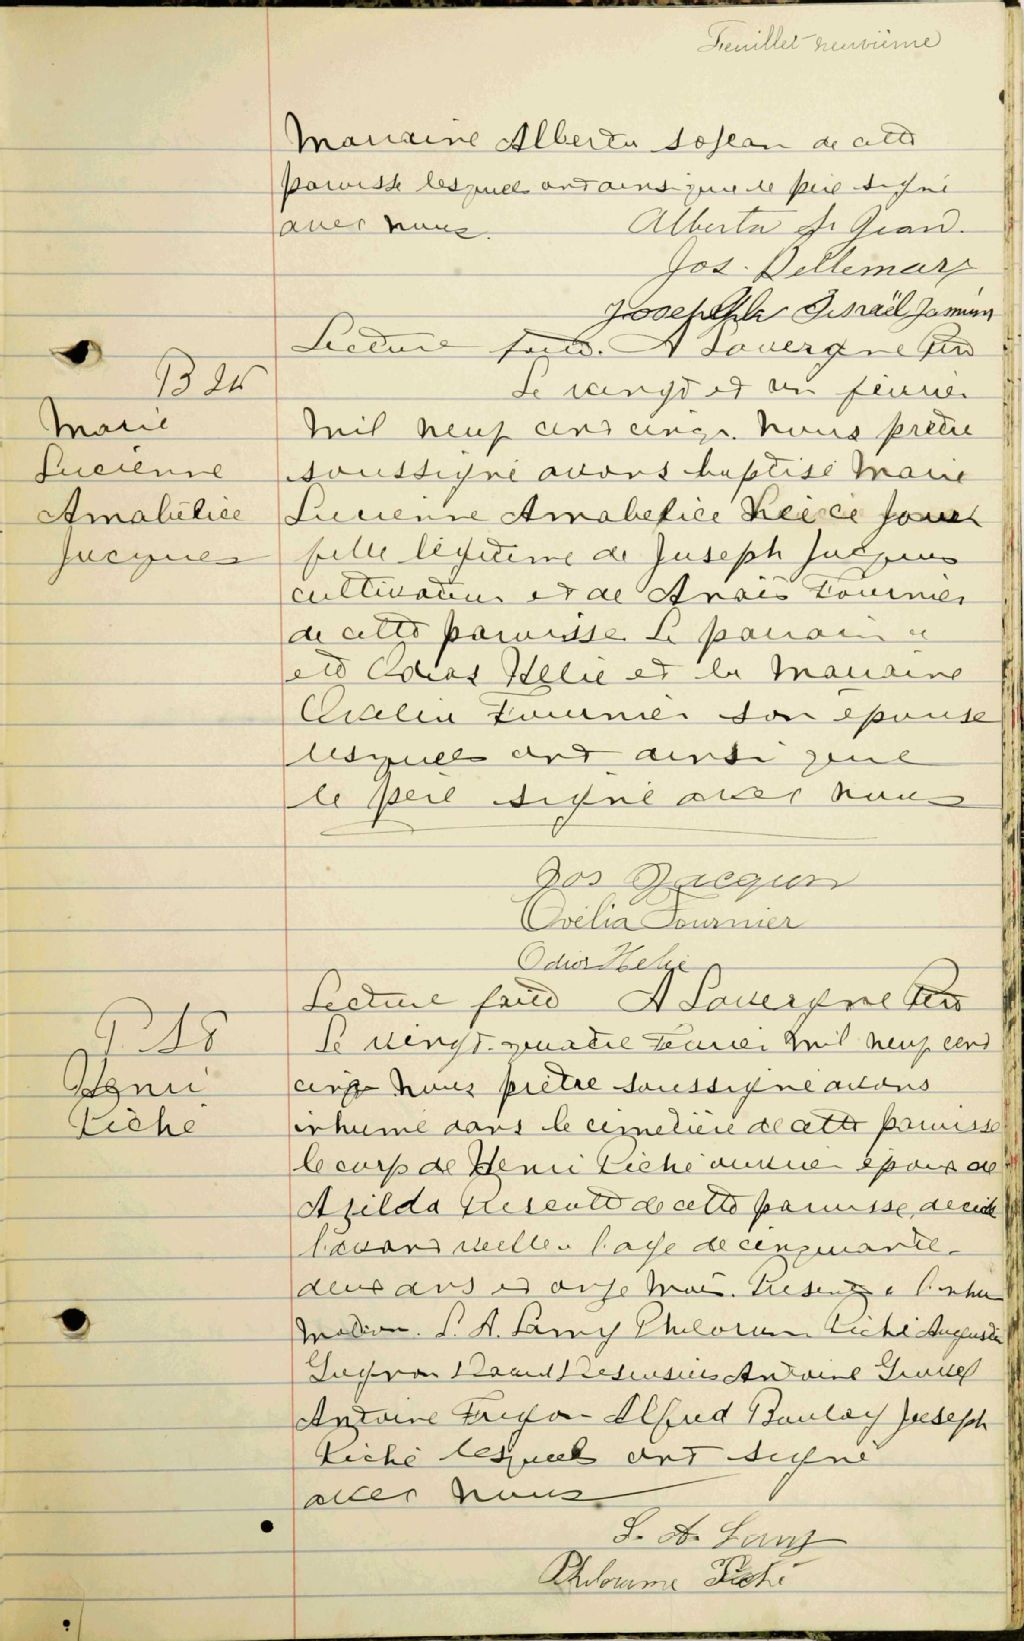 Feuillet neuvième
Marraine Alberta St Jean de cette
paroisse lesquels ont ainsi que le père signé
avec nous. Alberta St Jean.
Jos. Bellemare
Joseph Israël Jasmin
Lecture faite. A Lavergne Ptre
B 25
Le vingt et un février
Marie
Lucienne
Amabélice
Jacques
mil neuf cent cinq. nous prêtre
soussigné avons baptisé Marie
Lucienne Amabelice née ce jour
fille légitime de Joseph Jacques
cultivateur et de Anaïs Fournier
de cette paroisse. Le parrain a
été Odias Helie et la Marraine
Ovélia Fournier son épouse
lesquels ont ainsi que
le père signé avec nous
Jos Jacques
Ovélia Fournier
Odias Helie
Lecture faite A Lavergne Ptre
Henri
Piché
Le vingt-quatre Février mil neuf cent
cinq nous prêtre soussigné avons
inhumé dans le cimetière de cette paroisse
le corps de Henri Piché ouvrier époux de
Azilda de cette paroisse, décédé
l'avant veille a l'age de cinquante-
deux ans et onze mois. Présents a l'inhu
mation. L. A. Lamy Philorum Piché Augustin
Antoine
Antoine Frigon Alfred Boulay Joseph
Piché lesquels ont signé
avec nous
L. A. Lamy
Philorume Piché